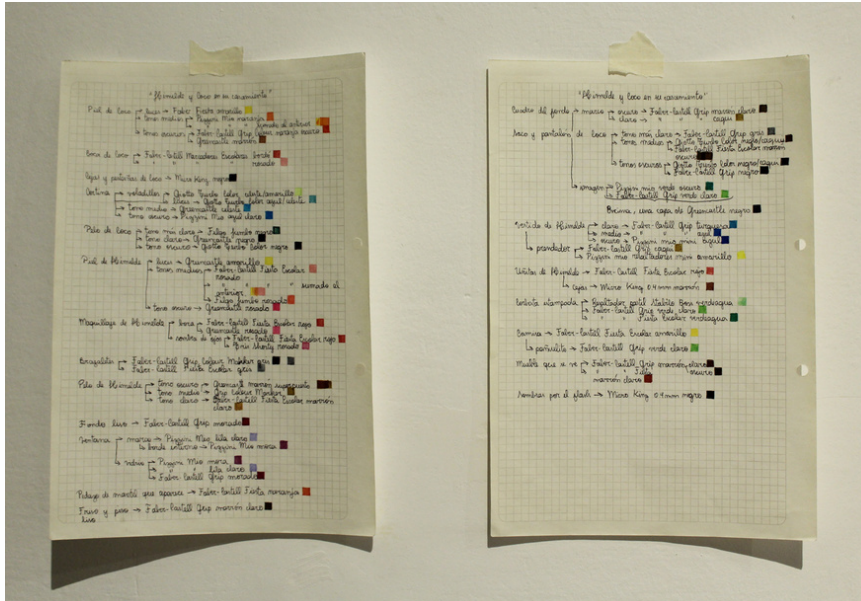 "Himelda y Loco en su casamiento"
Piel de Loco luces → Faber Fiesta amarillo
tonos medios → Pizzini Mio naranja
" " " sumado al anterior
tonos oscuros → Faber-Castell Grip Colour naranja oscuro
Gramantte marrón
Boca de Loco → Faber-Castell Marcadores Escolares bordó
rosado
Cejas y pestañas de Loco → Micro King negro
Cortina → voladillos → Giotto Turbo Color
luces → Giotto Turbo Color azul
tono medio → Gramantte celeste
tono oscuro → Pizzini Mio azul claro
Pelo de Loco → tono más claro → Fulgo Jumbo negro
tono claro → Gramantte negro
tono oscuro → Giotto Turbo Color negro
Piel de Himelda luces → Gramantte amarillo
tonos medios → Faber-Castell Fiesta Escolar
rosado
" " " " sumado al
anterior
Fulgo Jumbo rosado
tono oscuro → Gramantte rosado
Maquillaje de Himelda → boca → Faber-Castell Fiesta Escolar rojo
Gramantte rosado
sombra de ojos → Faber-Castell Fiesta Escolar rojo
rosado
Brazaletes → Faber-Castell Grip Colour Marker gris
Faber-Castell Fiesta Escolar gris
Pelo de Himelda → tono oscuro → Gramantte marrón
tono medio → Grip Colour Marker
tono claro → Faber-Castell Fiesta Escolar marrón
claro
Fondo liso → Faber-Castell Grip morado
Ventana marco → Pizzini Mio lila claro
borde interno → Pizzini Mio mora
vidrio → Pizzini Mio mora
" " lila claro
Faber-Castell Grip morado
Pedazo de mantel que aparece → Faber-Castell Fiesta naranja
Friso y piso → Faber-Castell Grip marrón claro
liso
"Himelda y Loco en su casamiento"
Cuadro del fondo → marco → oscuro → Faber-Castell Grip marrón claro
claro → " " " caqui
Saco y pantalón de Loco → tono más claro → Faber-Castell Grip gris
tonos medios → Giotto Turbo Color negro/caqui
Faber-Castell Fiesta Escolar marrón
oscuro
tonos oscuros → Giotto Turbo Color negro/caqui
Faber-Castell Grip negro
Pizzini mio verde oscuro
Faber-Castell Grip verde claro
Encima, una capa de Gramantte negro
Vestido de Himelda → claro → Faber-Castell Grip turquesa
medio → " " " azul
oscuro → Pizzini mio mini azul
prendedor → Faber-Castell Grip caqui
Pizzini mio resaltadores mini amarillo
Uñitas de Himelda → Faber-Castell Fiesta Escolar rojo
Micro King 0.4 mm marrón
Corbata estampada → Resaltador pastel Stabilo Boss verdeagua
Faber-Castell Grip verde claro
" " Fiesta Escolar verdeagua
Camisa → Faber-Castell Fiesta Escolar amarillo
Faber-Castell Grip verde claro
Mueble que se ve → Faber-Castell Grip marrón claro
" " Fiesta " oscuro
marrón claro
Sombras por el flash → Micro King 0.4 mm negro